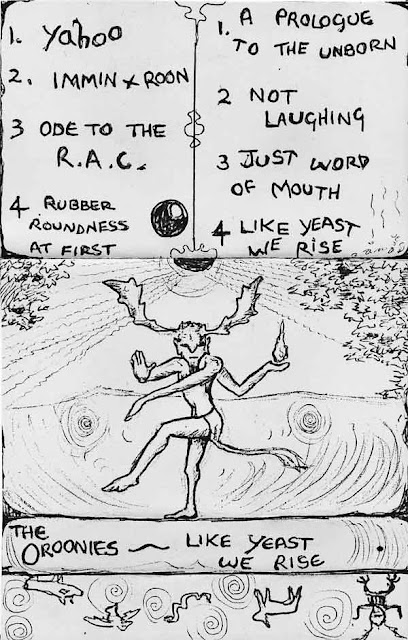 1. Yahoo
2. IMMIN X ROON
3 ODE TO THE
R.A.C.
4 RUBBER
ROUNDNESS
AT FIRST
1. A PROLOGUE
TO THE UNBORN
2 NOT
LAUGHING
3 JUST WORD
OF MOUTH
4 LIKE YEAST
WE RISE
THE
OROONIES ~ LIKE YEAST
WE RISE